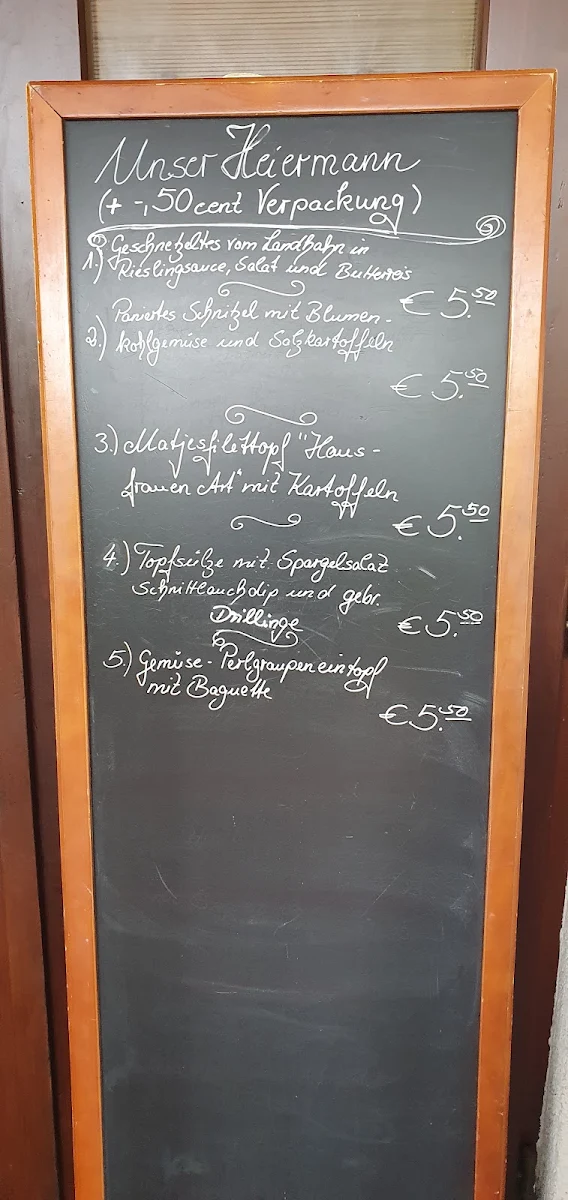 Unser Heiermann
(+ -,50 cent Verpackung)
1.) Geschnetzeltes vom Landhahn in
Rieslingsauce, Salat und Butterreis
€ 5.50
Paniertes Schnitzel mit Blumen-
2.) kohlgemüse und Salzkartoffeln
€ 5.50
3.) Matjesfilettopf "Haus-
frauen Art" mit Kartoffeln
€ 5.50
4.) Topfsülze mit Spargelsalat
Schnittlauchdip und gebr.
Drillinge
€ 5.50
5.) Gemüse-Perlgraupeneintopf
mit Baguette
€ 5.50